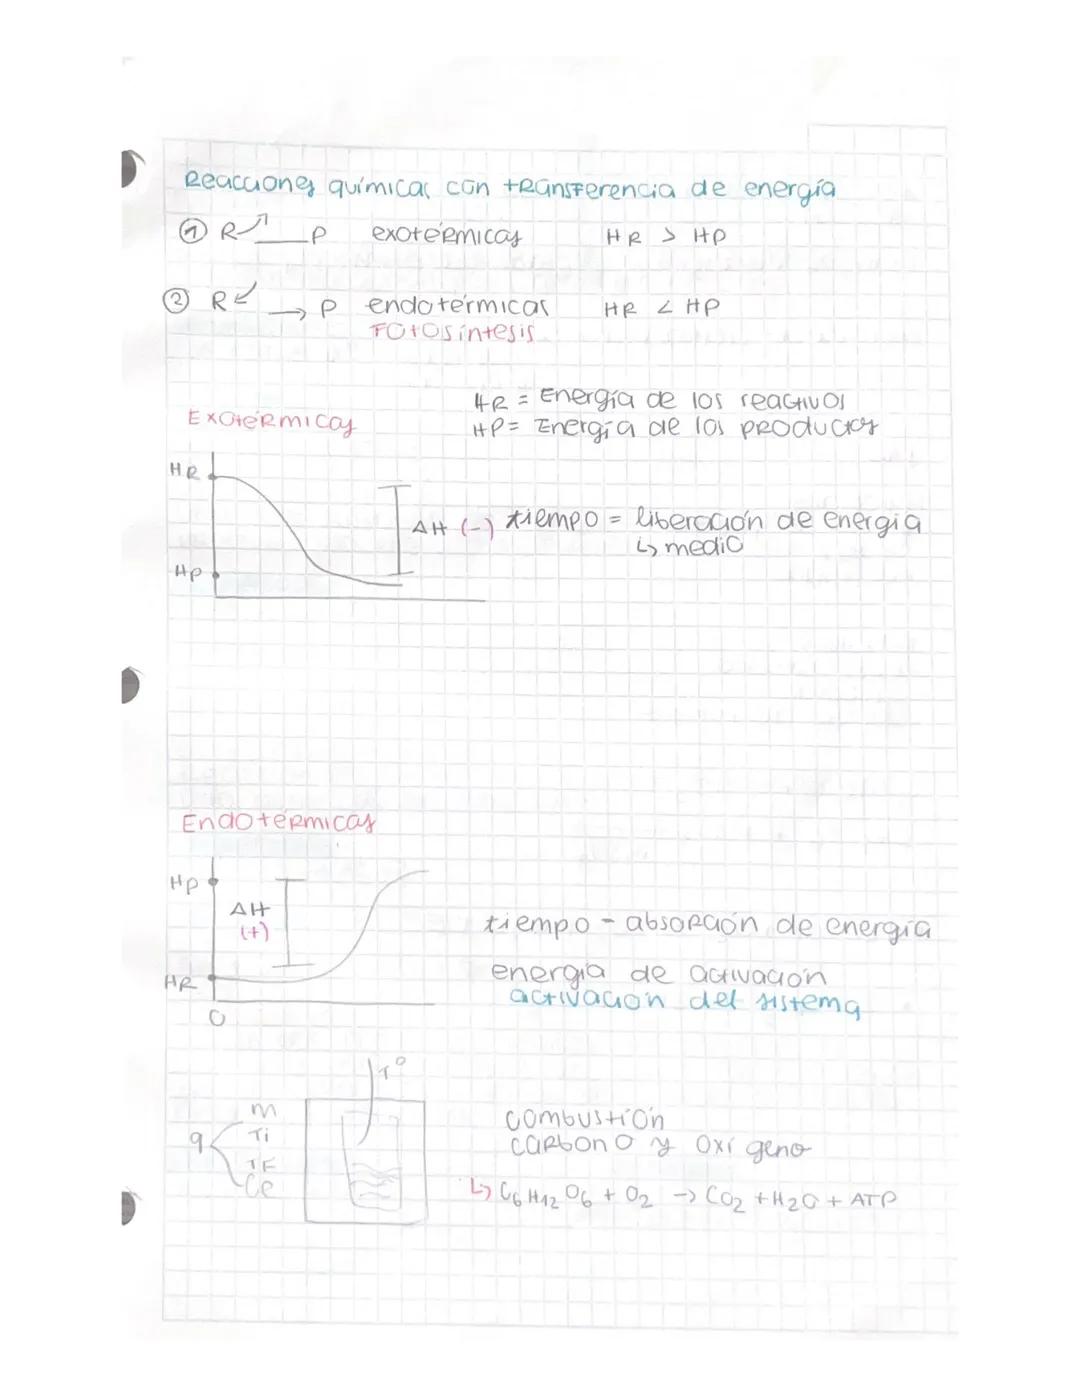 Reacciones químicas con transferencia de energía
① R P exotérmicas HR > HP
② R → P endotérmicas HR < HP
Fotosíntesis
HR = Energía de los reactivos
Exotérmicas
HP = Energía de los productos
HR
ΔH (-) tiempo = liberación de energía
↳ medio
HP
Endotérmicas
HP
ΔH
(+)
tiempo - absorción de energía
energía de activación
HR
activación del sistema
0
T°
m
combustión
q Ti
carbono y oxígeno
TF
Ce
↳ C6H12O6 + O2 → CO2 + H2O + ATP